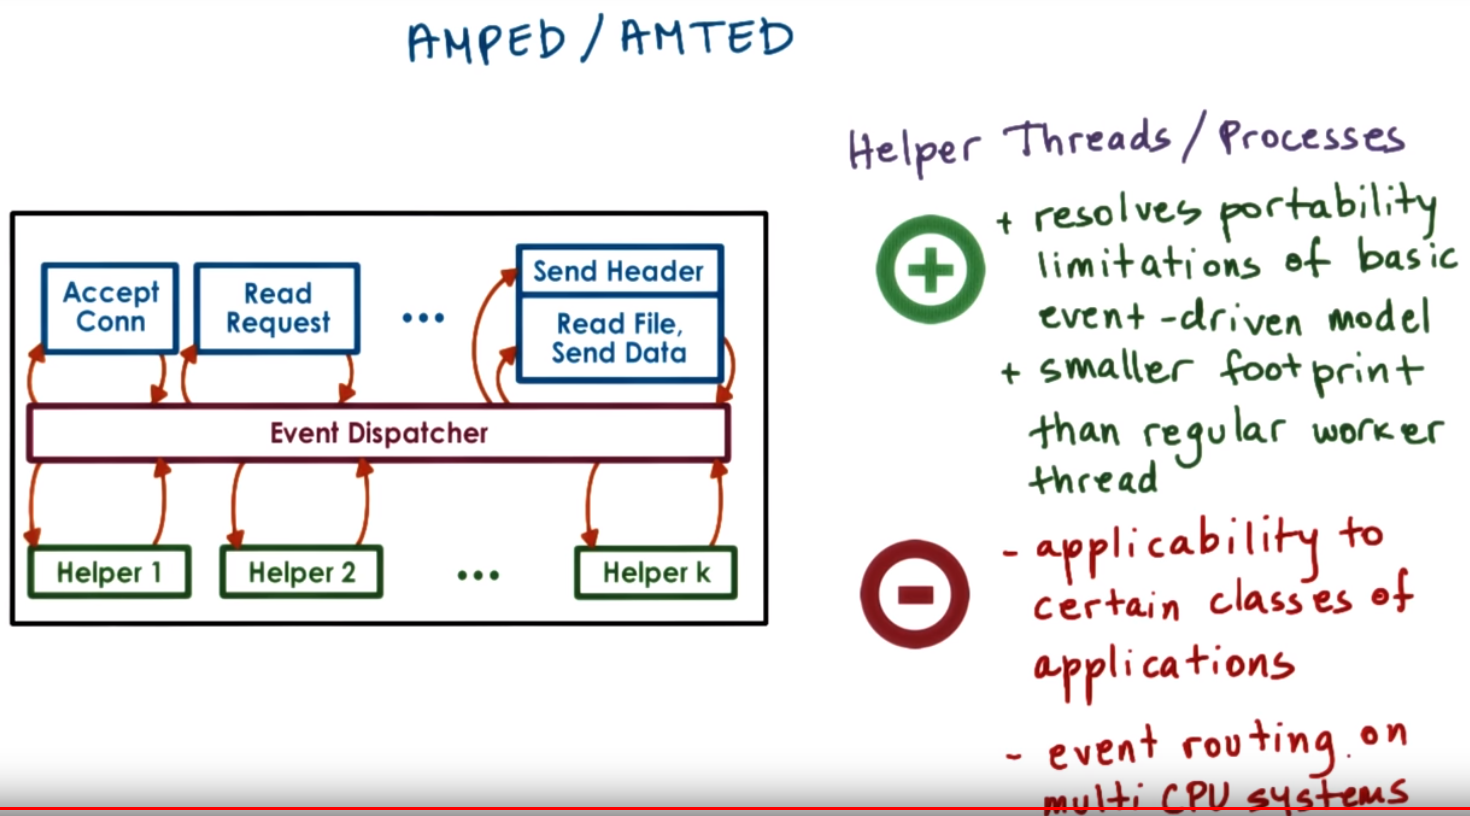 AMPED / AMTED
Accept
Conn
Read
Request
...
Send Header
Read File,
Send Data
Event Dispatcher
Helper 1
Helper 2
...
Helper k
Helper Threads / Processes
+ resolves portability
limitations of basic
event-driven model
+ smaller footprint
than regular worker
thread
- applicability to
certain classes of
applications
- event routing on
multi CPU systems